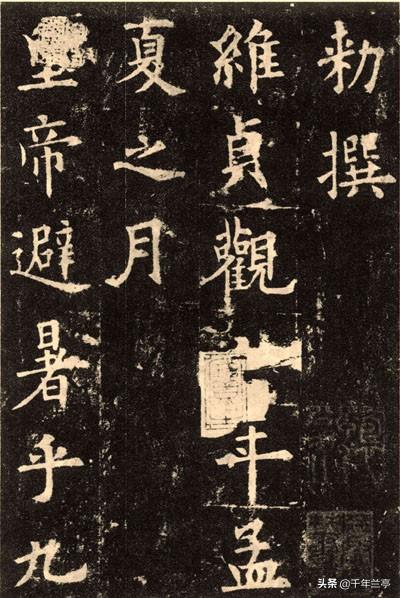 勑撰
維貞觀年孟
夏之月
皇帝避暑乎九
头条 @千年兰亭